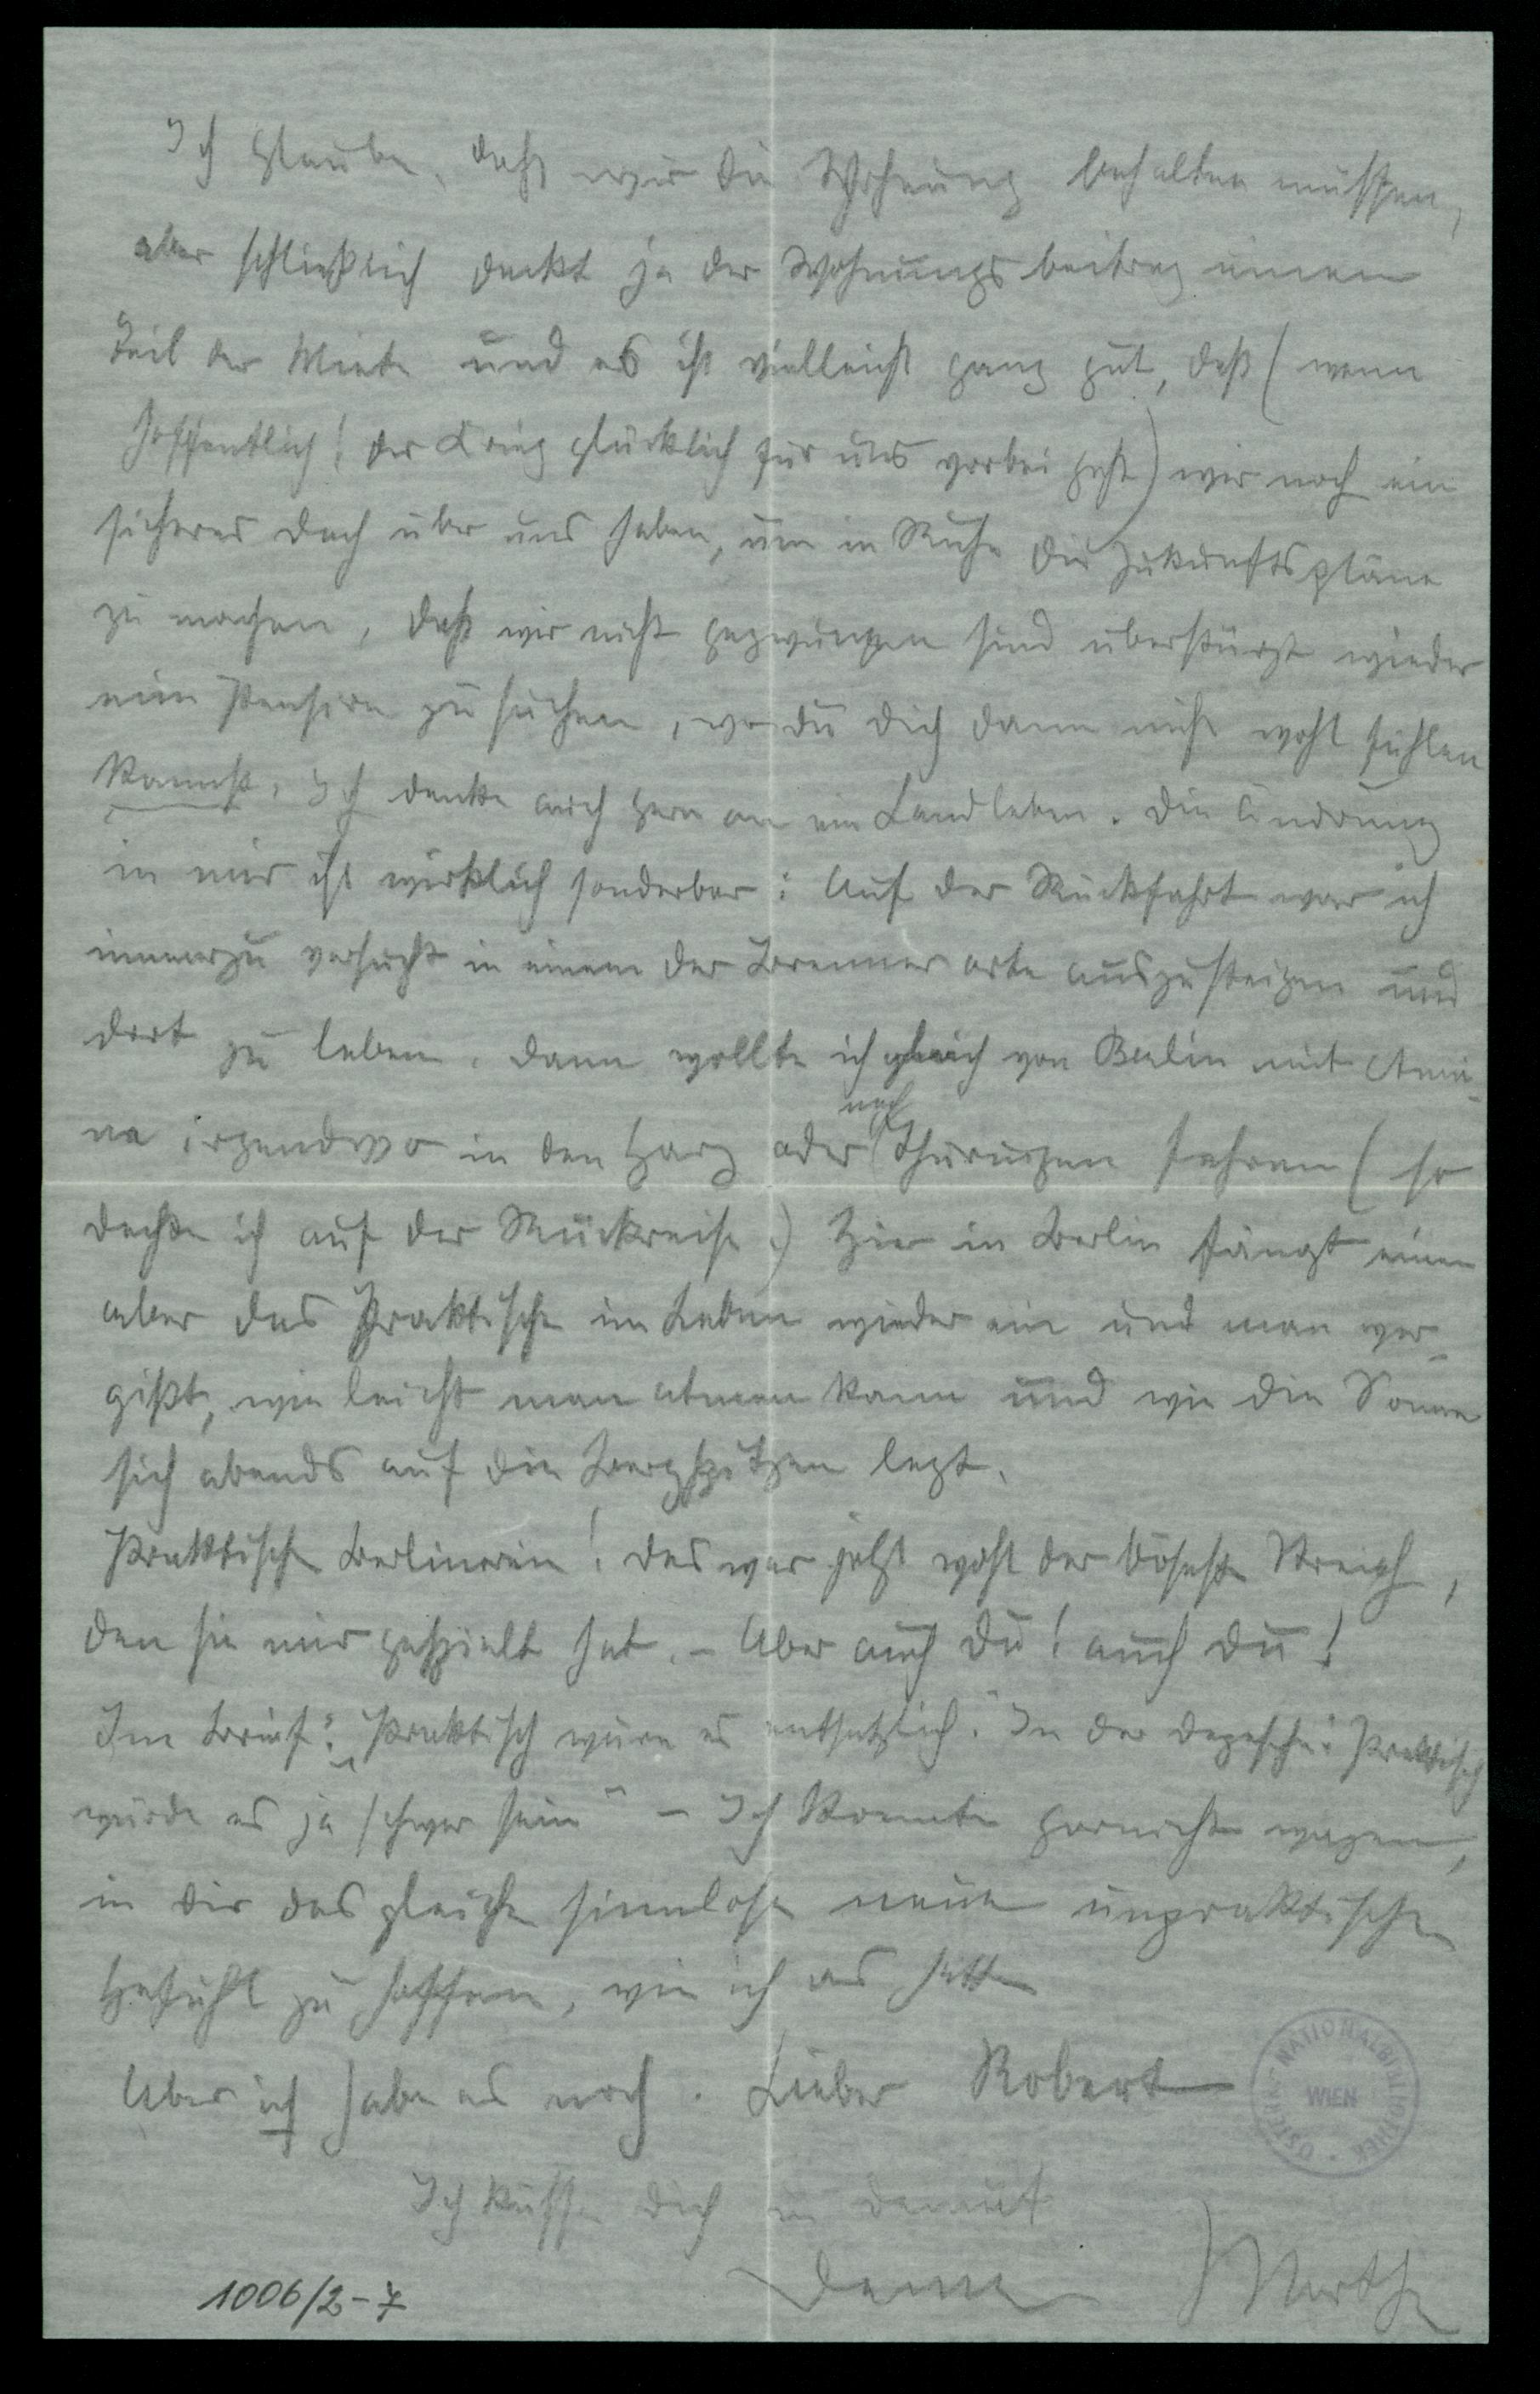 Ich glaube, daß wir die Wohnung behalten müssen,
aber schließlich deckt ja der Wohnungsbeitrag einen
Teil der Miete und es ist vielleicht ganz gut, daß (wenn
hoffentlich! der Krieg glücklich für uns vorbei geht) wir noch ein
sicheres Dach über uns haben, um in Ruhe die Zukunftspläne
zu machen, daß wir nicht gezwungen sind überstürzt wieder
eine Pension zu suchen, wo du dich dann nicht wohl fühlen
kannst. Ich denke auch gern an ein Landleben. Die Ändrung
in mir ist wirklich sonderbar: Auf der Rückfahrt war ich
immerzu versucht in einem der Brennerorte auszusteigen und
dort zu leben. Dann wollte ich gleich von Berlin mit Anni-
na irgendwo in den Harz oder nach Thüringen fahren (so
dachte ich auf der Rückreise.) Hier in Berlin fängt einen
aber das Praktische im Leben wieder ein und man ver-
gißt, wie leicht man atmen kann und wie die Sonne
sich abends auf die Bergspitzen legt.
Praktische Berlinerin! Das war jetzt wohl der böseste Streich,
den sie mir gespielt hat. – Aber auch du! auch du!
Im Brief: „Praktisch wäre es entsetzlich." In der Depesche: Praktisch
würde es ja schwer sein" – Ich konnte garnicht wagen,
in dir das gleiche sinnlose neue unpraktische
Gefühl zu hoffen, wie ich es hatte
Aber ich habe es noch. Lieber Robert
Ich küsse dich in Demut
Deine Martha
1006/2-7
ÖSTERR. NATIONALBIBLIOTHEK WIEN